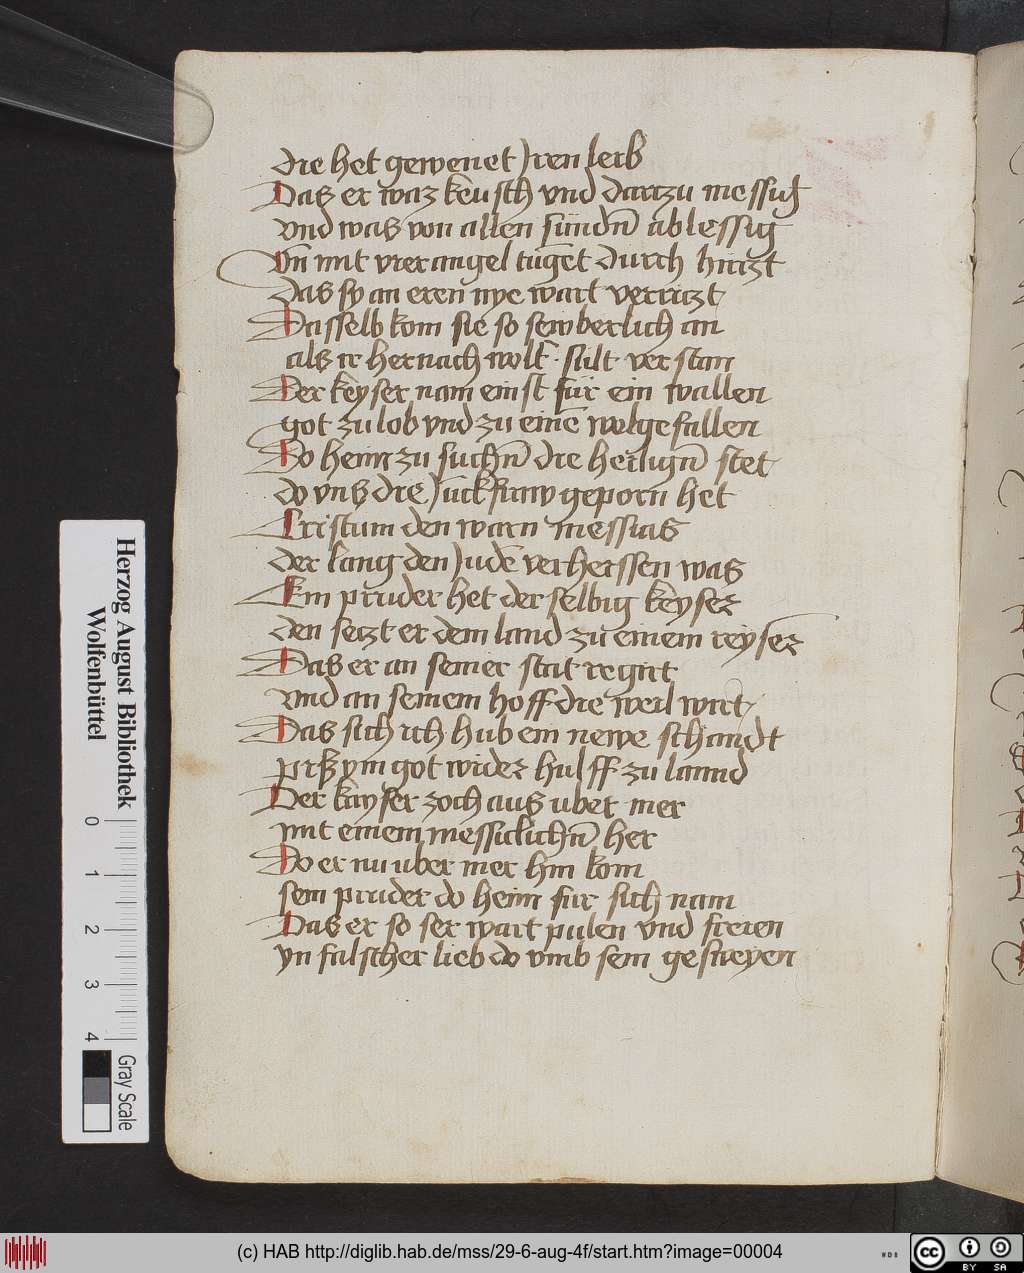 die het gewenet Jren leib
Das er waz keusch vnd dartzu messig
vnd was von allen sündn̄ ablessig
Vn̄ mit vier angel tugēt durch hitzt
das sy an eren nye wart verritzt
Dasselb kom sie so sewberlich an
als ir hernach wolt silt verstan
Der keyser nam einst für ein wallen
got zu lob vnd zu einē wolgefallen
Do heim zu suchn̄ die heilign̄ stet
do vns die Juckfraw geporn het
Cristum den warn messias
der lang den Judē verheissen was
Ein pruder het der selbig keyser
den setzt er dem land zu einem reyser
Das er an seiner stat regirt
vnd an seinem hoff die weil wirt
Das sich ich hub ein newe schandt
ym got wider hulff zu lannd
Der kayser zoch aus uber mer
mit einem messiclichn̄ her
Do er nu uber mer hin kom
sein pruder do heim fur sich nam
Das er so ser wart pulen vnd freien
yn falscher lieb do vmb sein gesweyen
Herzog August Bibliothek
Wolfenbüttel
0 1 2 3 4
Gray Scale
(c) HAB http://diglib.hab.de/mss/29-6-aug-4f/start.htm?image=00004
WDB
cc BY SA